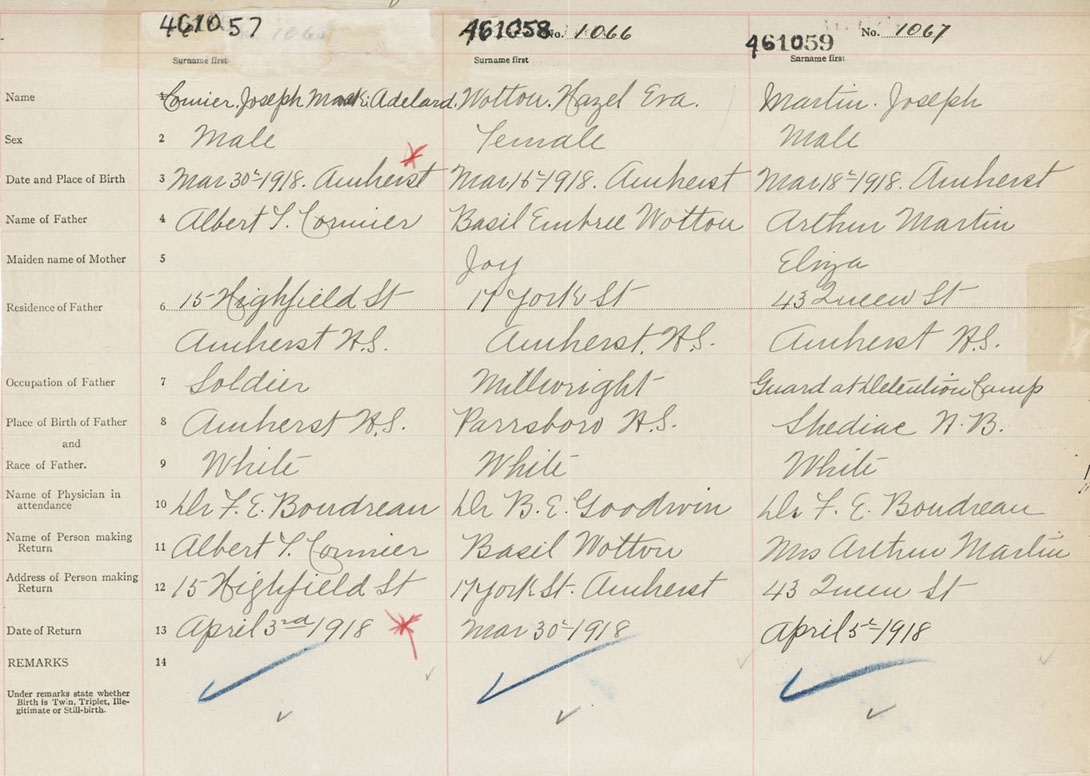 461057 461058 No. 1066 461059 No. 1067
Surname first Surname first Surname first
Name 1 Cormier. Joseph Adelard. Wotton. Hazel Eva. Martin. Joseph
Sex 2 Male Female Male
Date and Place of Birth 3 Mar 30th 1918. Amherst Mar 15th 1918. Amherst Mar 18th 1918. Amherst
Name of Father 4 Albert T. Cormier Basil Embree Wotton Arthur Martin
Maiden name of Mother 5 Joy
Residence of Father 6 15 Highfield St 17 York St 43 Queen St
Amherst N.S. Amherst. N.S. Amherst N.S.
Occupation of Father 7 Soldier Millwright Guard at Detention Camp
Place of Birth of Father 8 Amherst N.S. Parrsboro N.S. Shediac N.B.
and
Race of Father. 9 White White White
Name of Physician in
attendance 10 Dr F. E. Boudreau Dr B. E. Goodwin Dr. F. E. Boudreau
Name of Person making
Return 11 Albert T. Cormier Basil Wotton Mrs Arthur Martin
Address of Person making
Return 12 15 Highfield St 17 York St. Amherst 43 Queen St
Date of Return 13 April 3rd 1918 Mar 30th 1918 April 5th 1918
REMARKS 14
Under remarks state whether
Birth is Twin, Triplet, Ille-
gitimate or Still-birth.